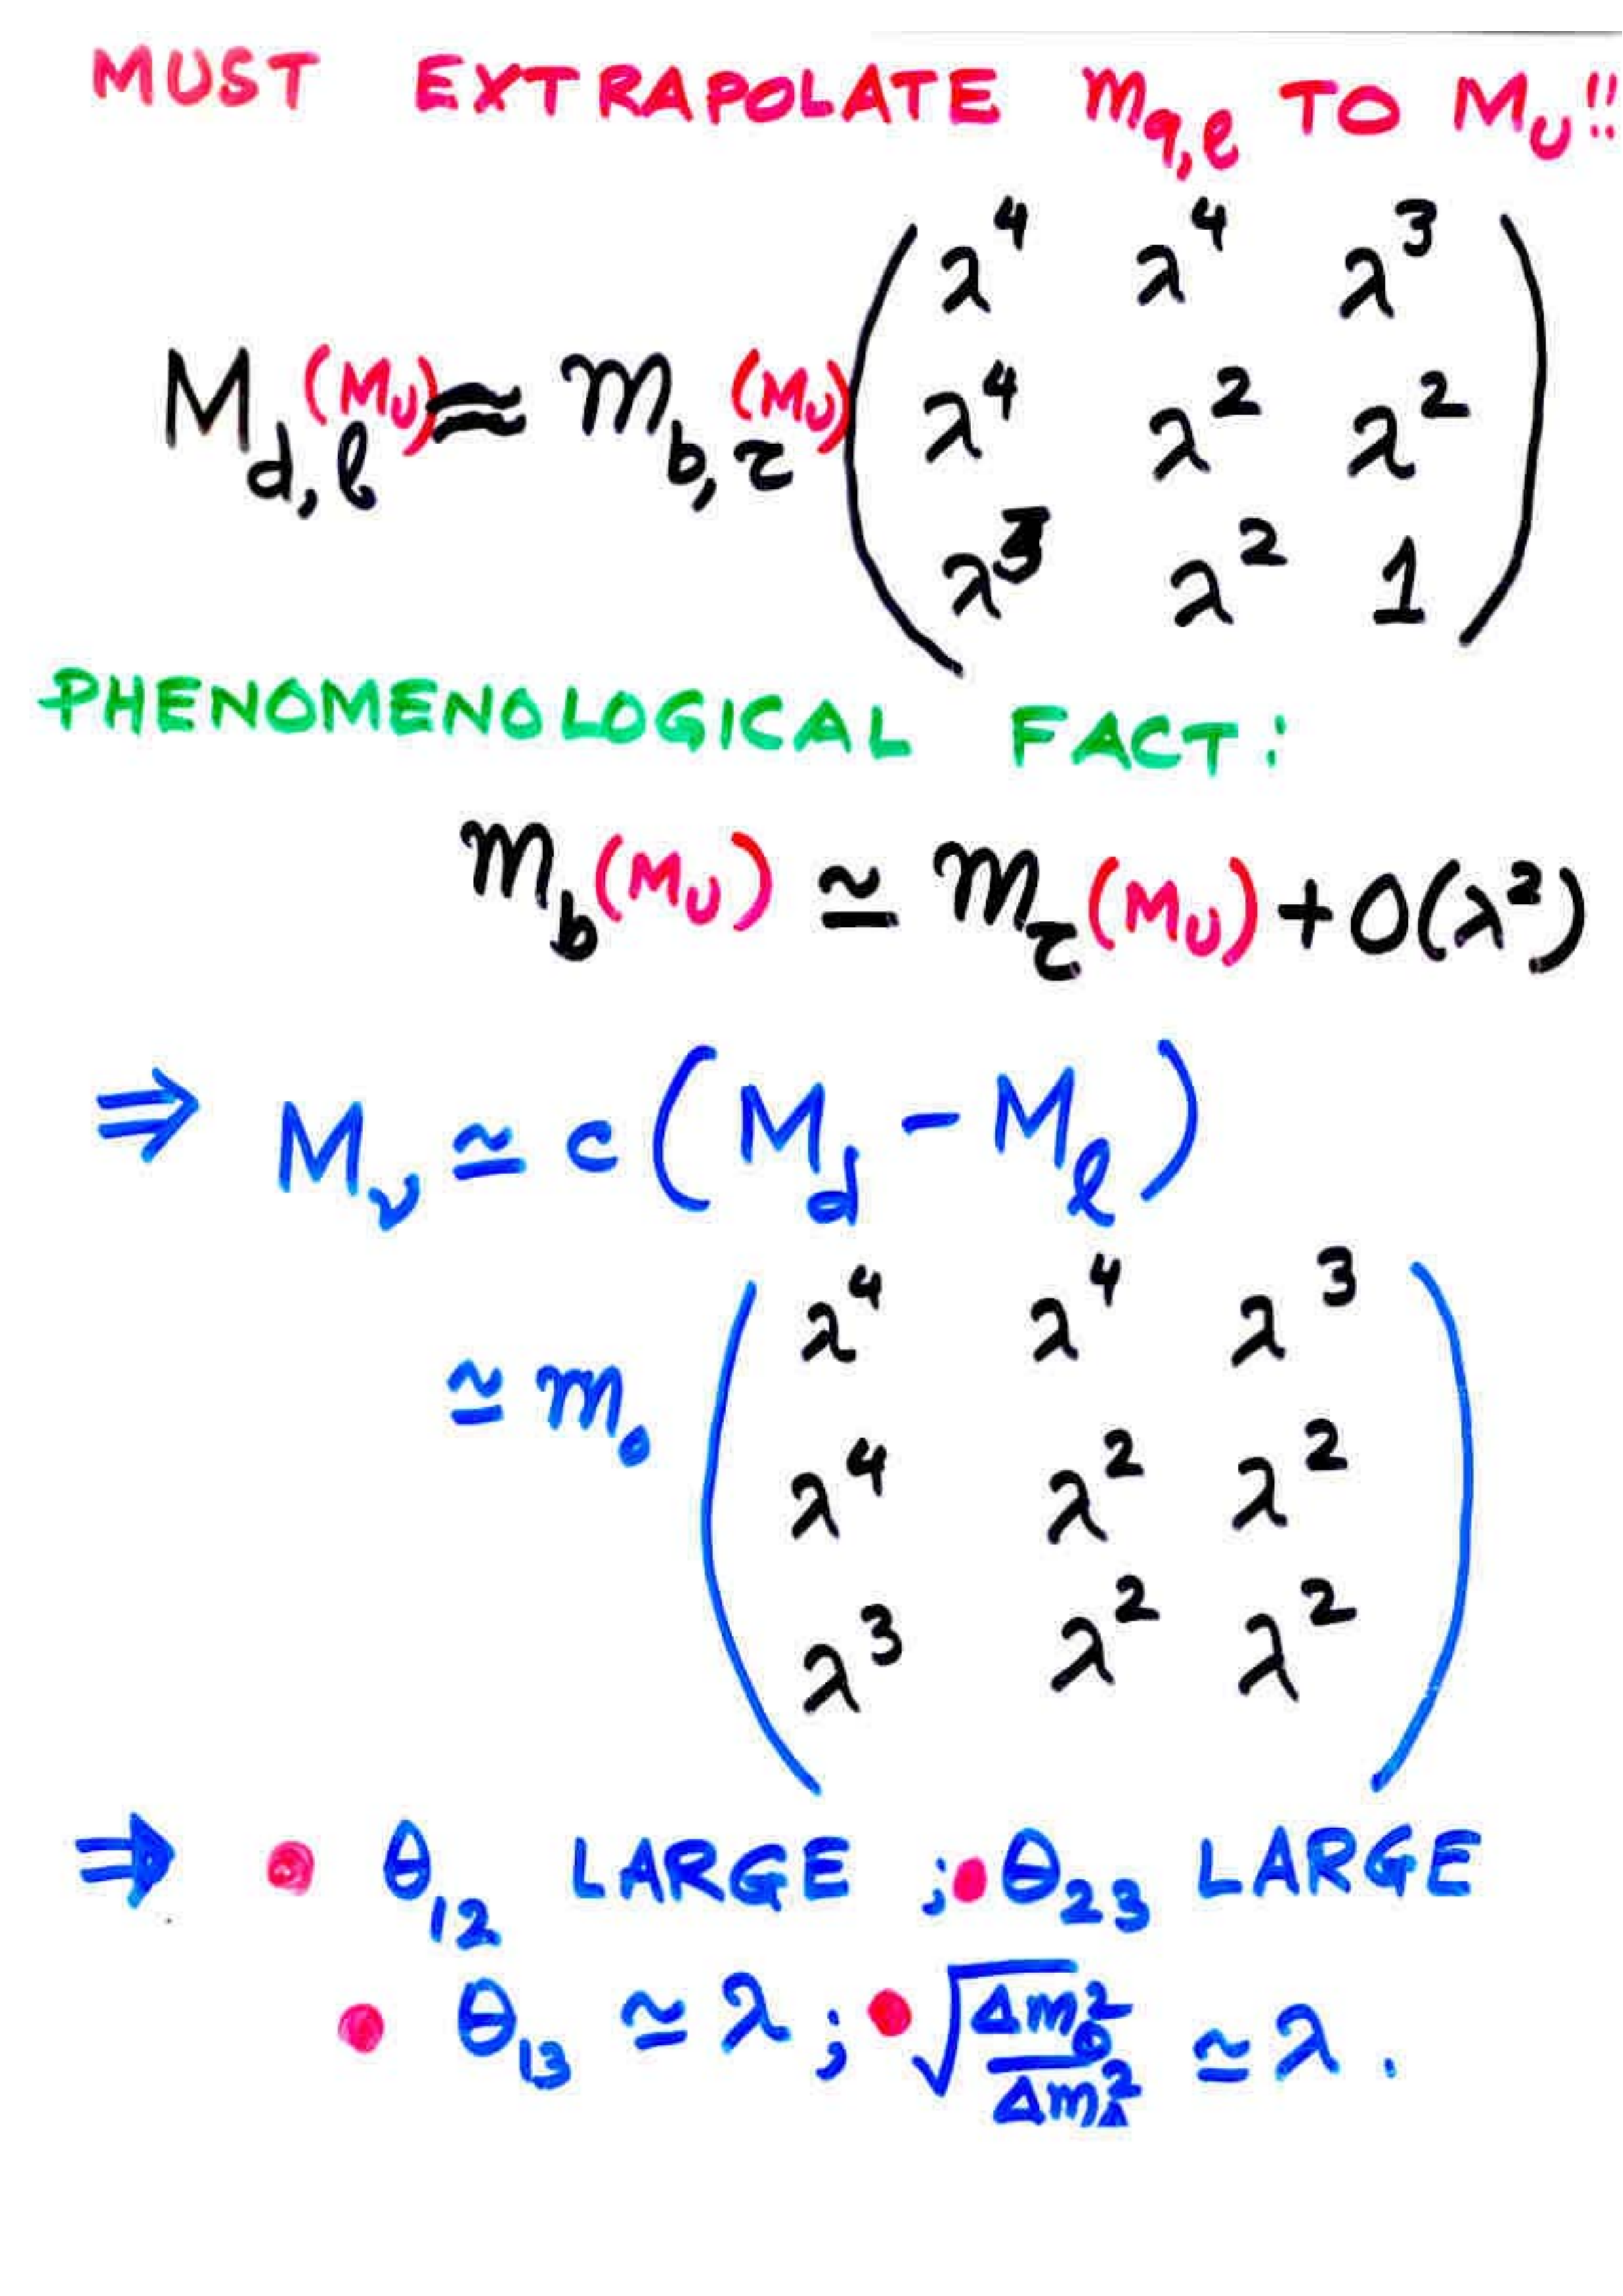 MUST EXTRAPOLATE m_{q,ℓ} TO M_U!!
M_{d,ℓ}(M_U) ≈ m_{b,τ}(M_U) ( λ^4 λ^4 λ^3
λ^4 λ^2 λ^2
λ^3 λ^2 1 )
PHENOMENOLOGICAL FACT:
m_b(M_U) ≃ m_τ(M_U) + O(λ^2)
⇒ M_ν ≃ c ( M_d - M_ℓ )
≃ m_0 ( λ^4 λ^4 λ^3
λ^4 λ^2 λ^2
λ^3 λ^2 λ^2 )
⇒ • θ_{12} LARGE ; • θ_{23} LARGE
• θ_{13} ≃ λ ; • √(Δm_⊙^2 / Δm_A^2) ≃ λ .